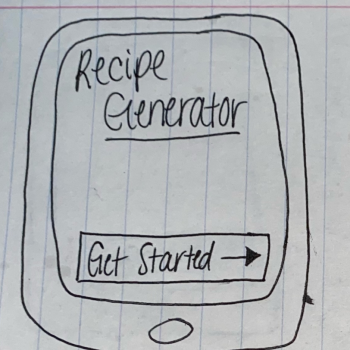 Recipe
Generator
Get Started →